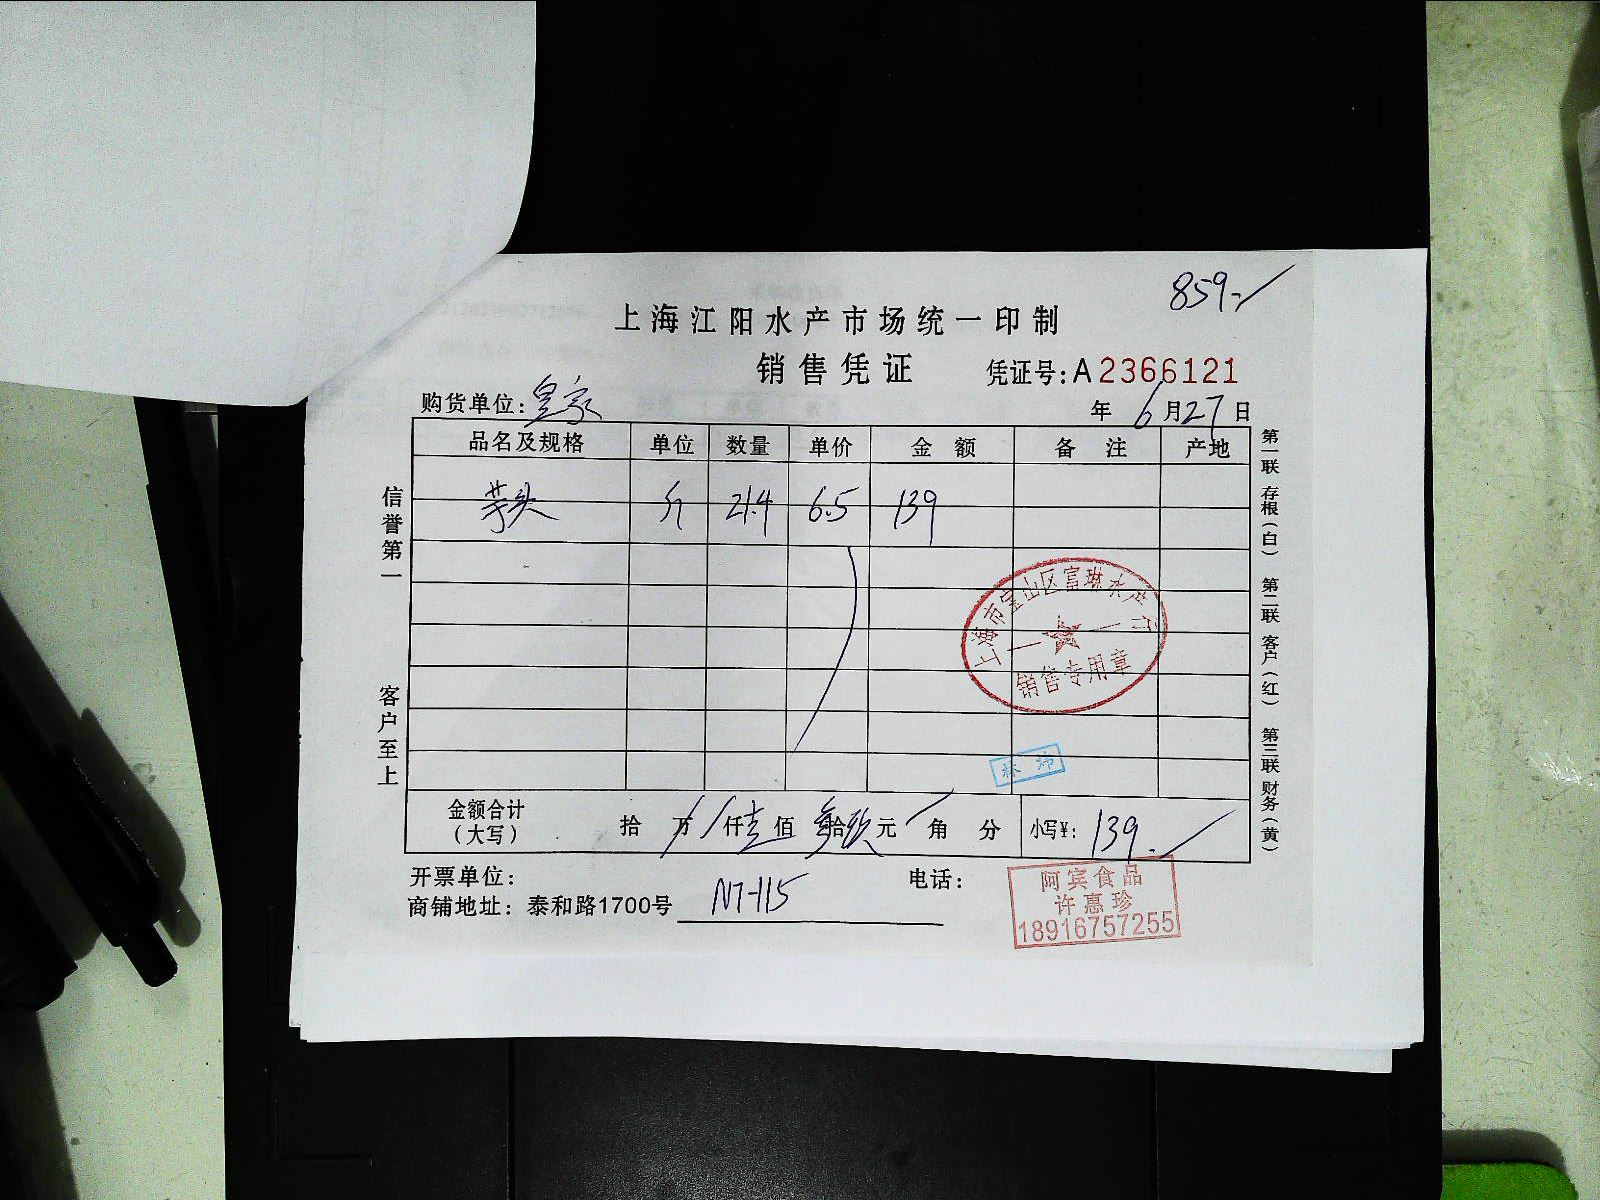 859-
上海江阳水产市场统一印制
销售凭证 凭证号:A2366121
购货单位:皇家 年 6月27日
品名及规格 单位 数量 单价 金额 备注 产地
芋头 斤 21.4 6.5 139
信誉第一
客户至上
第一联 存根(白) 第二联 客户(红) 第三联 财务(黄)
上海市宝山区富琳水产行
销售专用章
林炜
金额合计(大写) 拾 万 仟壹佰叁拾玖元 角 分 小写¥: 139.
开票单位: 电话:
商铺地址: 泰和路1700号 N7-115
阿宾食品
许惠珍
18916757255